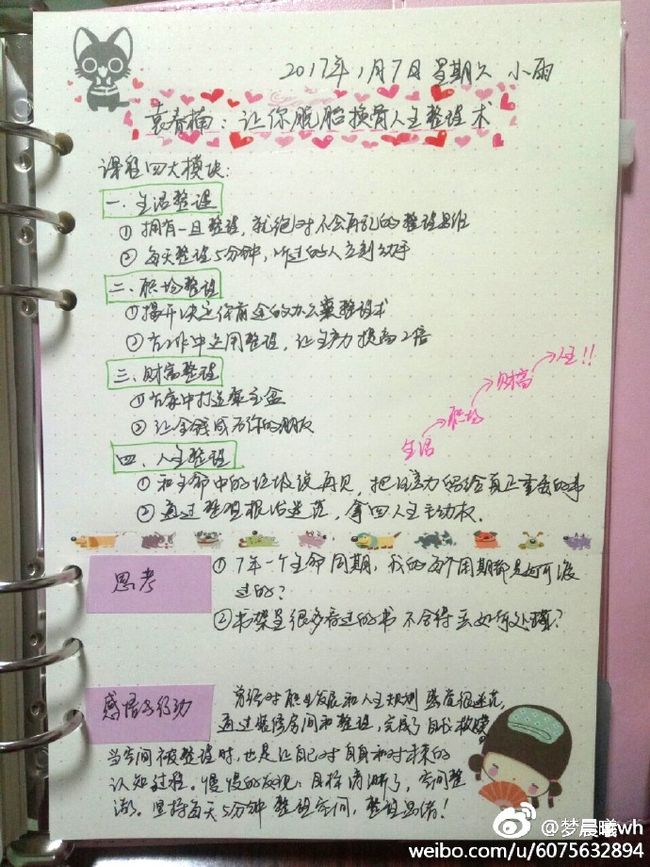 2017年1月7日 星期六 小雨
袁春楠：让你脱胎换骨人生整理术
课程四大模块：
一、生活整理
① 拥有一旦整理，就绝对不会再乱的整理思维
② 每天整理5分钟，听过的人立刻动手
二、职场整理
① 揭开决定你前途的办公桌整理术
② 在工作中运用整理，让生产力提高2倍
三、财富整理
① 在家中打造聚宝盆
② 让金钱成为你的朋友
生活→职场→财富→人生!!
四、人生整理
① 和生命中的垃圾说再见，把注意力留给真正重要的事
② 通过整理根治迷茫，拿回人生主动权。
思考
① 7年一个生命周期，我的每个周期都是如何渡
过的？
② 书架里很多看过的书不舍得丢如何处理？
感悟与行动
曾经对职业发展和人生规划 感觉很迷茫
通过整理房间和整理，完成了自我救赎。
当空间被整理时，也是让自己对自身和对未来的
认知过程。慢慢的发现：目标清晰了，空间整
洁。坚持每天5分钟 整理空间，整理思绪！
@梦晨曦wh
weibo.com/u/6075632894